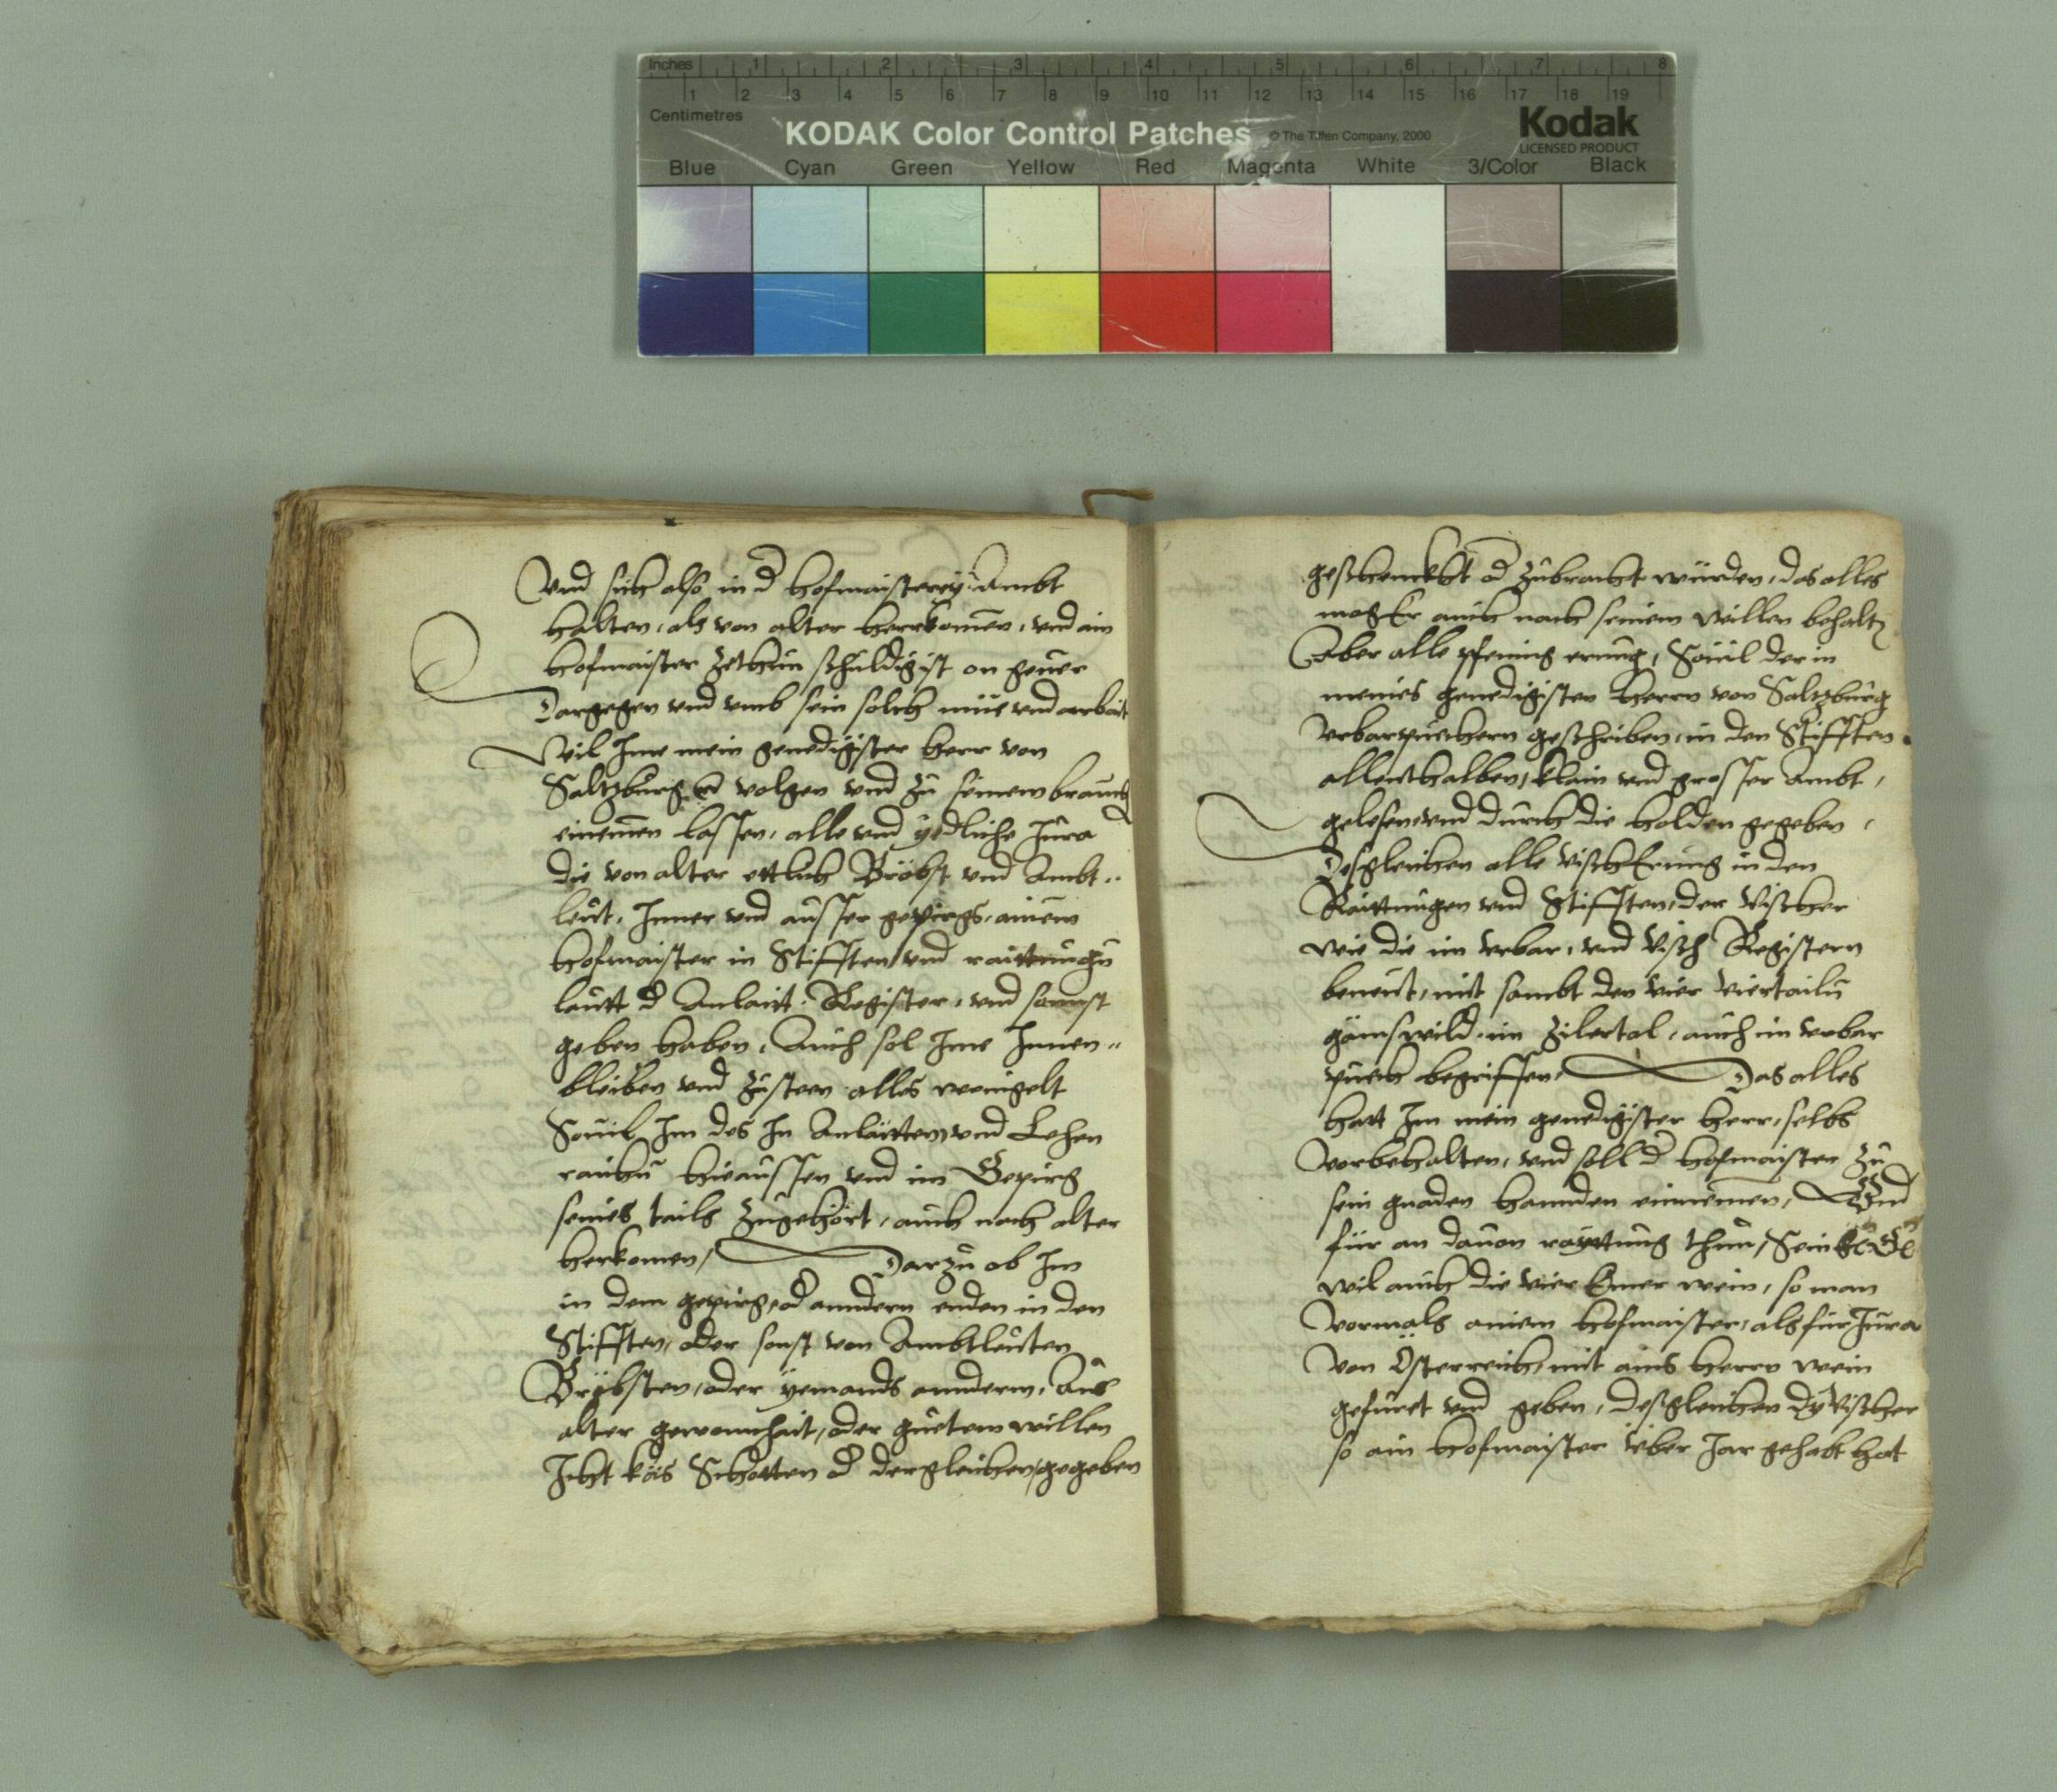 Inches 1 2 3 4 5 6 7 8
1 2 3 4 5 6 7 8 9 10 11 12 13 14 15 16 17 18 19
Centimetres
KODAK Color Control Patches © The Tiffen Company, 2000 Kodak
LICENSED PRODUCT
Blue Cyan Green Yellow Red Magenta White 3/Color Black
Vnd sich also in d hofmaisterey Ambt
halten, als von alter herrkomen, vnd ain
hofmaister zethun schuldig ist on geuer
Dargegen vnd vmb sein solch müe vnd arbait
Wil Ime mein genedigister herr von
Saltzburg volgen vnd zu seinem brauch
einemen lassen, alle vnd yedliche Jura
die von alter ettlich Bröbst vnd Ambt..
leut, Inner vnd ausser gepirgs, ainem
hofmaister in Stifften vnd raittungn
lautt d Anlait Register, vnd sonnst
geben haben, Auch sol Ime Innen..
bleiben vnd zusteen alles weingelt
Souil Im des In Anlaitten vnd Lehen
raichn hieaussen vnd im Gepirg
seines tails zugehört, auch nach alter
herkomen, Darzu ob Im
in dem gepirg, od anndern enden in den
Stifften, oder sonst von Ambtleuten
Bröbsten, oder yemands annderm, Aus
alter gewonhait, oder guetem willen
Icht käs Schotten od dergleichen, gegeben
geschenckht od zubracht würden, das alles
mag Er auch nach seinem willen behaltn
Aber alle pfening erung, Souil der in
meines genedigisten herrn von Saltzburg
Vrbarpuechern geschriben, in den Stifften
allenthalben, klain vnd grosser Ambt,
gelesen vnd durch die holden gegeben,
Desgleichen alle Visch Erung in den
Raittungen vnd Stifften, der Vischer
wie die im vrbar, vnd Visch Registern
benent, mit sambt den vier viertailn
gämswild im Zilertal, auch im vrbar
puech begriffen, Das alles
hatt Im mein genedigister herr, selbs
vorbehalten, vnd soll d hofmaister zu
sein gnaden hannden einnemen, Vnd
für an dauon rayttung thun, Sein
wil auch die vier Emer wein, so man
vormals ainem hofmaister, als für Jura
von Österreich, mit ains herrn wein
gefuert vnd geben, desgleichen dy Vischer
so ain hofmaister über Jar gehabt hat